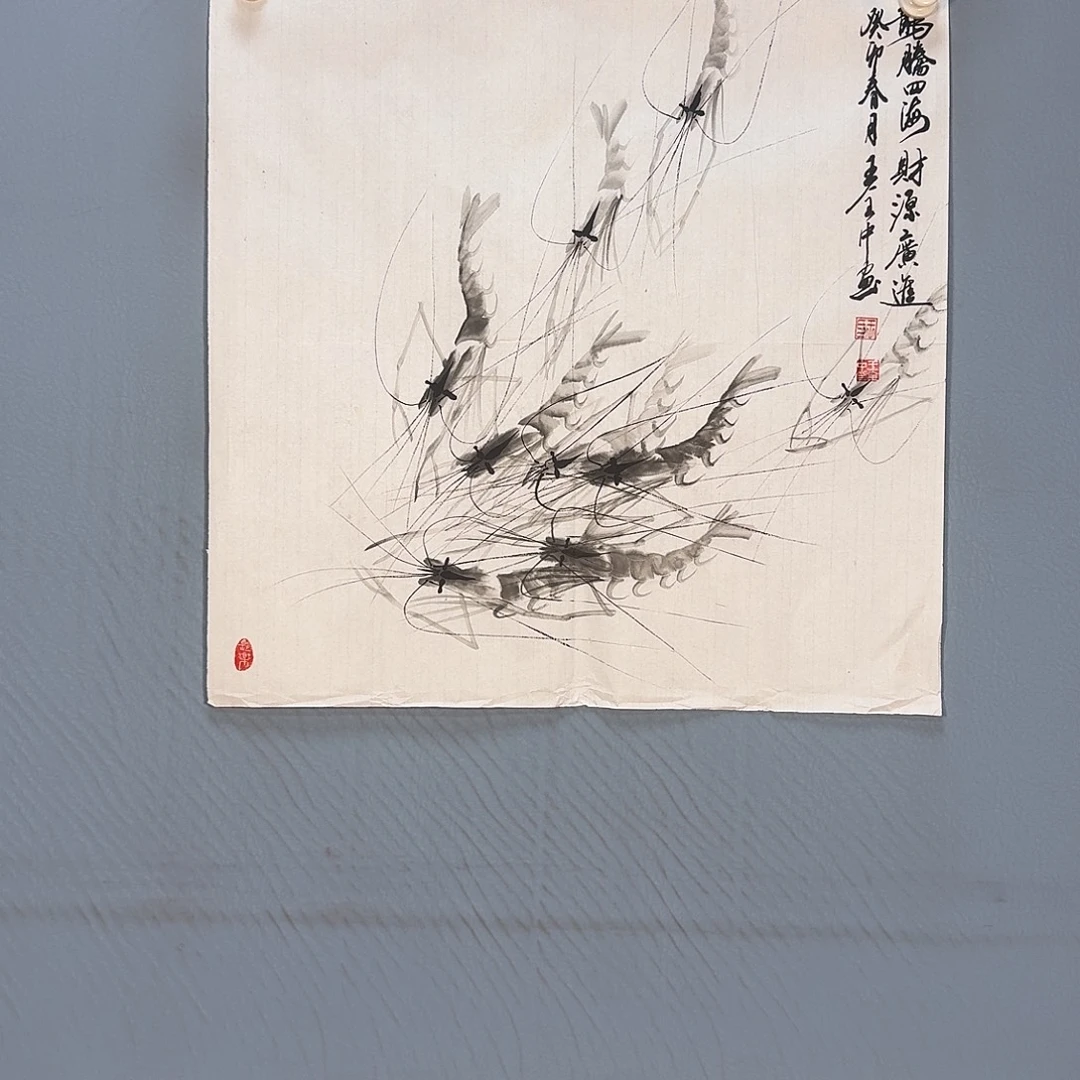 龍騰四海 財源廣進
癸卯春月 王玉中画